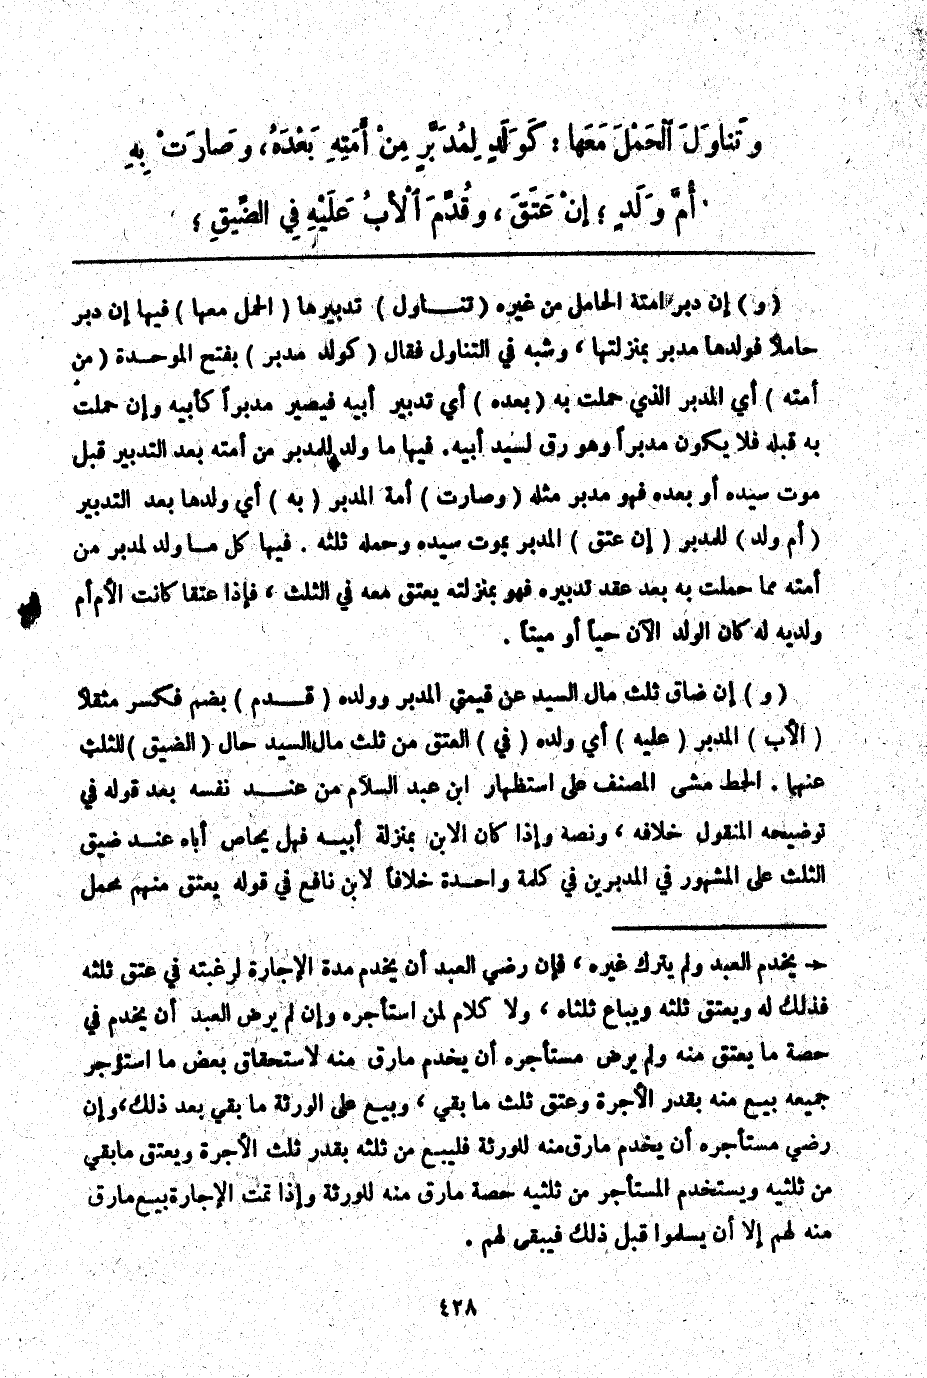 وتَناوَلَ ٱلْحَمْلَ مَعَها : كَوَلَدٍ لِمُدَبَّرٍ مِنْ أَمَتِهِ بَعْدَهُ، وصَارَتْ بِهِ
أُمَّ وَلَدٍ ؛ إِنْ عَتَقَ ، وقُدِّمَ ٱلْأَبُ عَلَيْهِ فِي الضِّيقِ ؛
( و ) إن دبر أمتة الحامل من غيره ( تنـــاول ) تدبيرها ( الحمل معها ) فيها إن دبر
حاملاً فولدها مدبر بمنزلتها ، وشبه في التناول فقال ( كولد مدبر ) بفتح الموحـدة ( من
أمته ) أي المدبر الذي حملت به ( بعده ) أي تدبير أبيه فيصير مدبراً كأبيه وإن حملت
به قبله فلا يكون مدبراً وهو رق لسيد أبيه . فيها ما ولد للمدبر من أمته بعد التدبير قبل
موت سيده أو بعده فهو مدبر مثله ( وصارت ) أمة المدبر ( به ) أي ولدها بعد التدبير
( أم ولد ) للمدبر ( إن عتق ) المدبر بموت سيده وحمله ثلثه . فيها كل مـا ولد لمدبر من
أمته مما حملت به بعد عقد تدبيره فهو بمنزلته يعتق معه في الثلث ، فإذا عتقا كانت الأم أم
ولديه له كان الولد الآن حياً أو ميتاً .
( و ) إن ضاق ثلث مال السيد عن قيمتي المدبر وولده ( قـــدم ) بضم فكسر مثقلاً
( الأب ) المدبر ( عليه ) أي ولده ( في ) العتق من ثلث مال السيد حال ( الضيق ) للثلث
عنها . الحط مشى المصنف على استظهار ابن عبد السلام من عنـــد نفسه بعد قوله في
توضيحه المنقول خلافه ، ونصة وإذا كان الابن بمنزلة أبيـه فهل يحاص أباه عنـد ضيق
الثلث على المشهور في المدبرين في كلمة واحـدة خلافاً لابن نافع في قوله يعتق منهم محمل
→ يخدم العبد ولم يترك غيره ، فإن رضي العبد أن يخدم مدة الإجارة لرغبته في عتق ثلثه
فذلك له ويعتق ثلثه ويباع ثلثاه ، ولا كلام لمن استأجره وإن لم يرض العبد أن يخدم في
حصة ما يعتق منه ولم يرض مستأجره أن يخدم مارق منه لاستحقاق بعض ما استؤجر
جميعه بيـع منه بقدر الأجرة وعتق ثلث ما بقي ، وبيـع على الورثة ما بقي بعد ذلك، وإن
رضي مستأجره أن يخدم مارق منه للورثة فليبـع من ثلثه بقدر ثلث الأجرة ويعتق مابقي
من ثلثيه ويستخدم المستأجر من ثلثيه حصة مارق منه للورثة وإذا تمت الإجارة بيـع مارق
منه لهم إلا أن يسلموا قبل ذلك فيبقى لهم .
٤٢٨